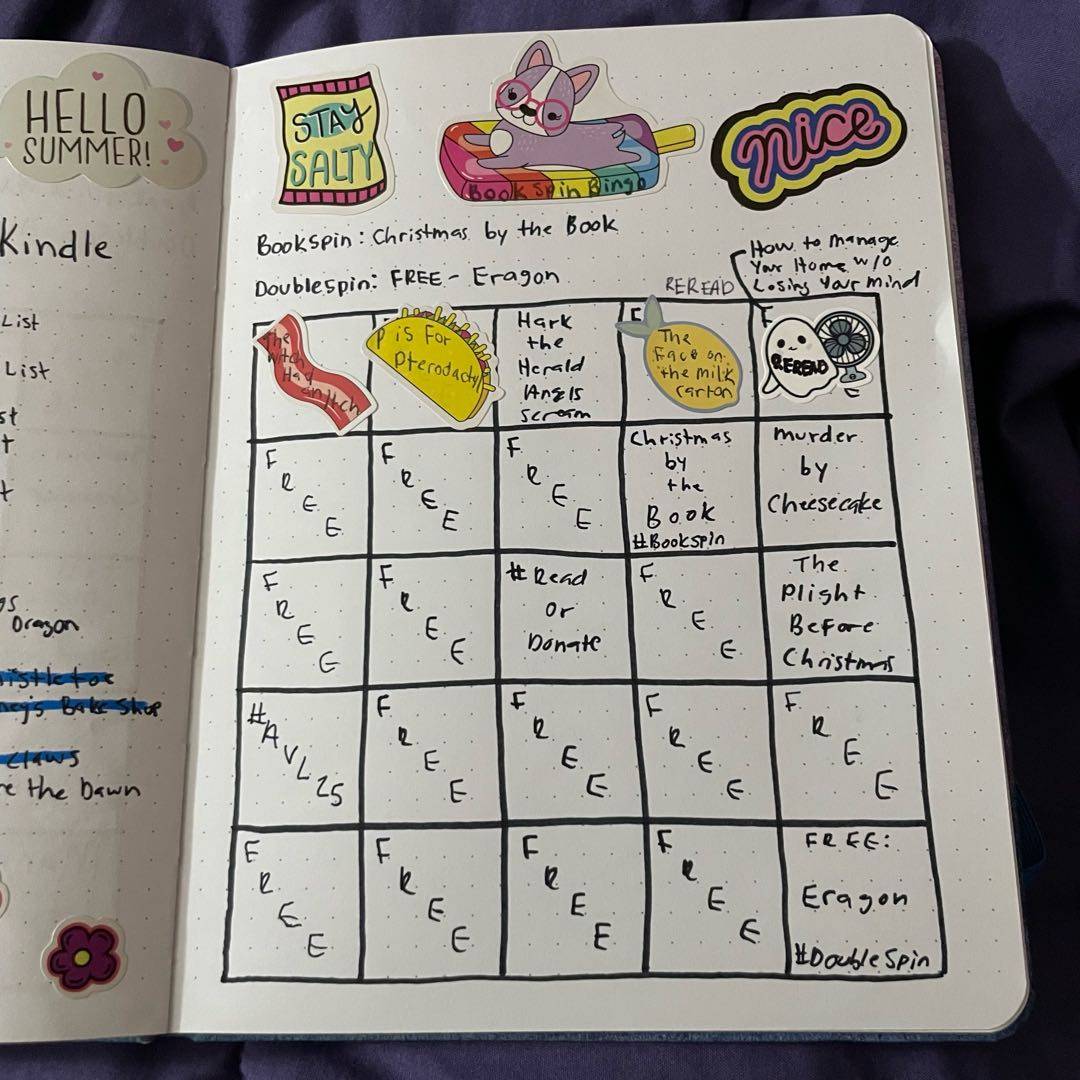 HELLO
SUMMER!
Kindle
List
List
st
t
t
os
Dragon
istletoe
ney's Bake Shop
Claws
re the Dawn
STAY
SALTY
BookSpin Bingo
nice
BookSpin: Christmas by the Book
Doublespin: FREE - Eragon
REREAD
How to manage
Your Home w/o
Losing Your Mind
The
Witch
Had
an Itch
P is For
Pterodactyl
Hark
the
Herald
Angls
scream
F
The
Face on
the milk
carton
F
REREAD
FREE
FREE
FREE
Christmas
by
the
Book
#Bookspin
murder
by
Cheesecake
FREE
FREE
#Read
or
Donate
FREE
The
Plight
Before
Christmas
#AVL25
FREE
FREE
FREE
FREE
FREE
FREE
FREE
FREE
FREE:
Eragon
#DoubleSpin